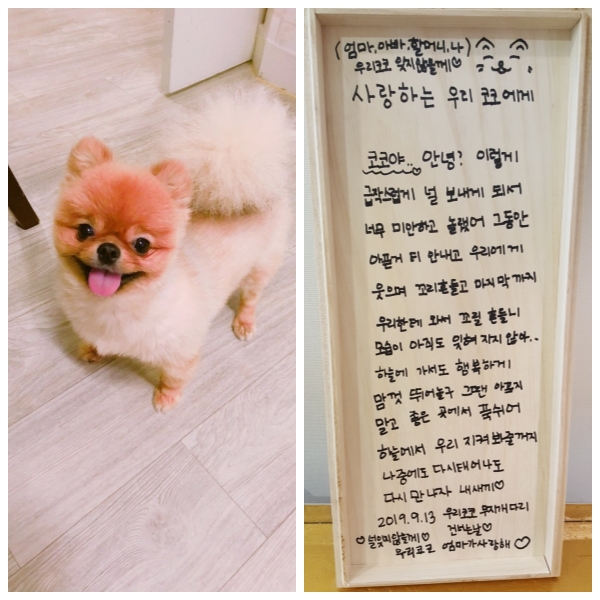 (엄마,아빠,할머니,나)
우리코코 잊지않을께♡
사랑하는 우리 코코에게
코코야.. 안녕? 이렇게
급작스럽게 널 보내게 되서
너무 미안하고 놀랬어 그동안
아픈거 티 안내고 우리에게
웃으며 꼬리흔들고 마지막까지
우리한테 와서 꼬릴 흔들니
모습이 아직도 잊혀 지지 않아..
하늘에 가서도 행복하게
맘껏 뛰어놀구 그땐 아프지
말고 좋은 곳에서 푹쉬어
하늘에서 우리 지켜봐줄꺼지
나중에도 다시태어나도
다시 만나자 내새끼♡
2019.9.13 우리코코 무지개다리
건너는날♡
♡널잊지않을께♡
우리코코 엄마가사랑해♡